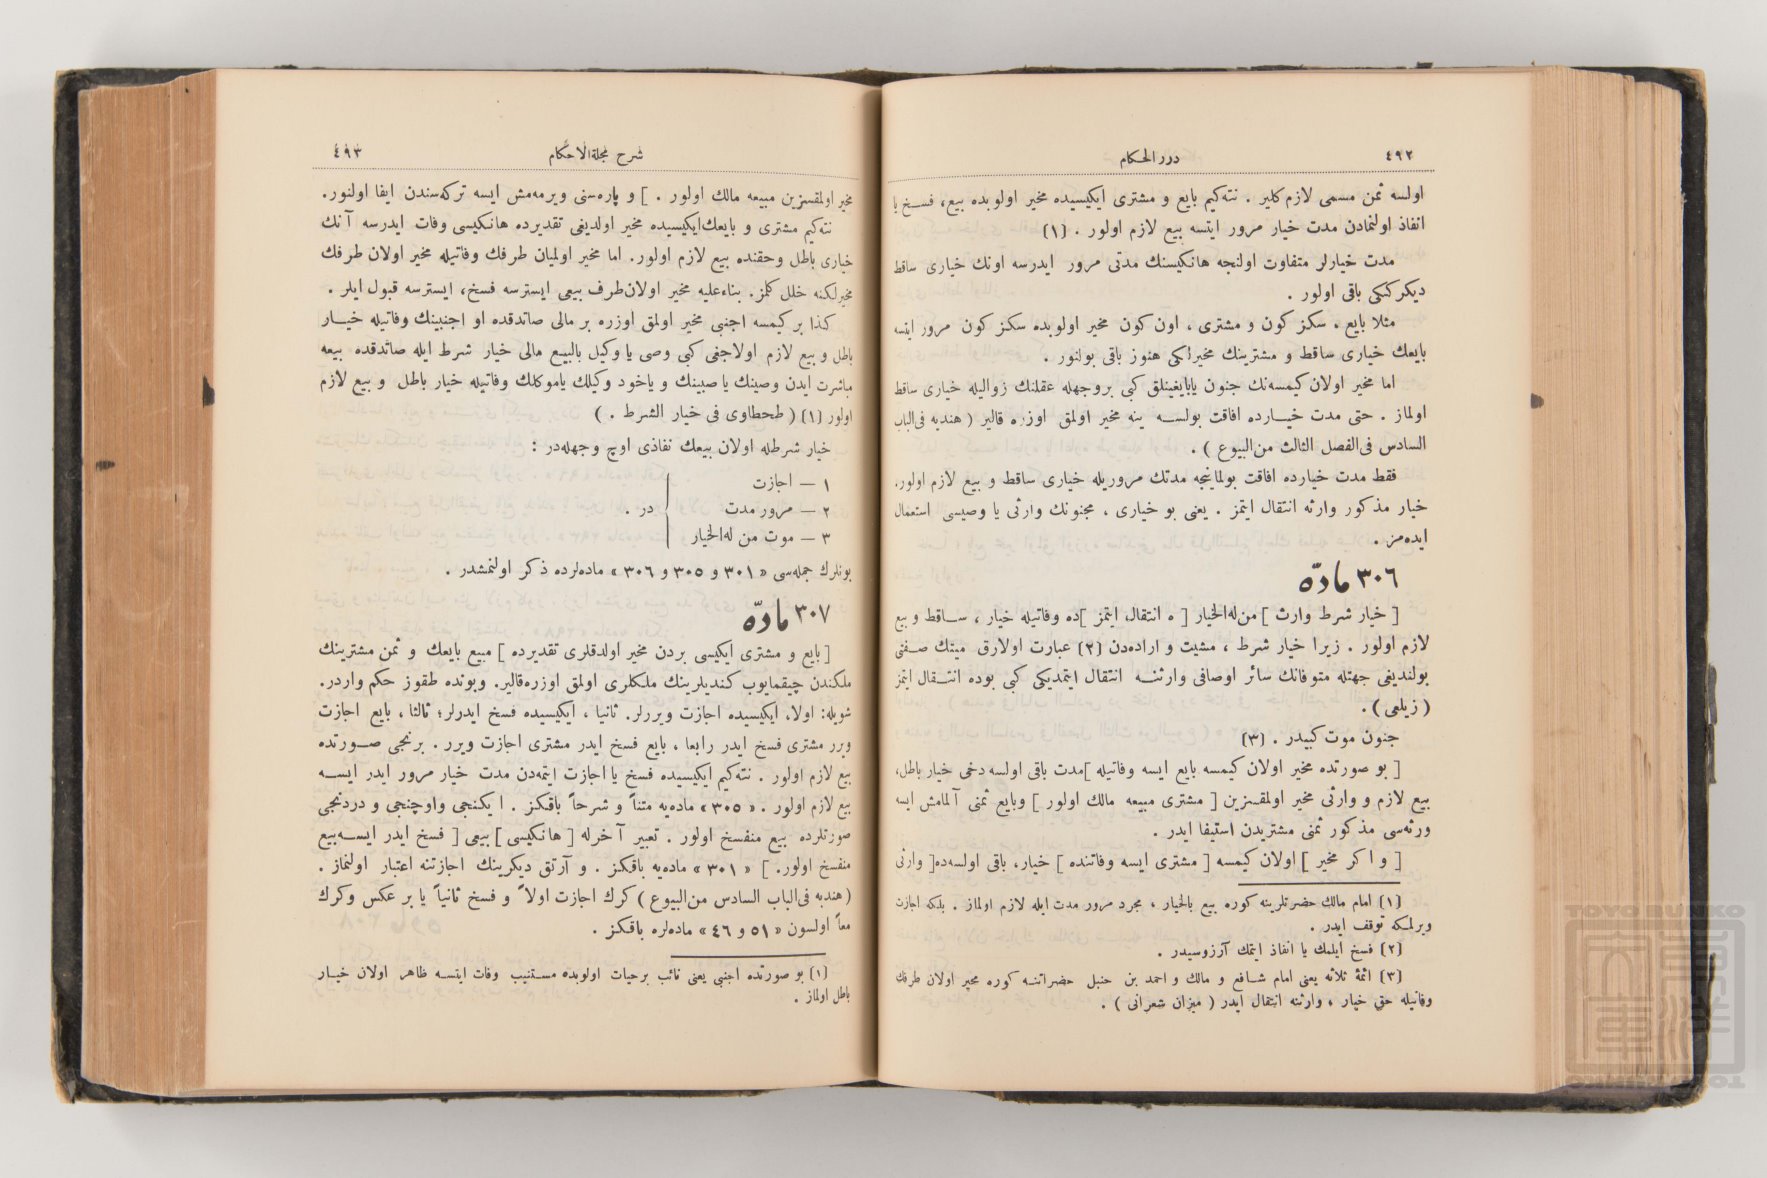 ٤٩٢
درر الحكام
اولسه ثمن مسمى لازم كلير . نته‌كيم بايع و مشترى ايكيسيده مخير اولوبده بيع، فسخ يا
انفاذ اولنمادن مدت خيار مرور ايتسه بيع لازم اولور . (١)
مدت خيارلر متفاوت اولنجه هانكيسنك مدتى مرور ايدرسه اونك خيارى ساقط
ديكركى باقى اولور .
مثلا بايع ، سكز كون و مشترى ، اون كون مخير اولوبده سكز كون مرور ايتسه
بايعك خيارى ساقط و مشترينك مخيرلكى هنوز باقى بولنور .
اما مخير اولان كيمسه‌نك جنون يابايغينلق كبى بروجهله عقلنك زواليله خيارى ساقط
اولماز . حتى مدت خيارده افاقت بولسه ينه مخير اولمق اوزره قالير ( هنديه فى الباب
السادس فى الفصل الثالث من البيوع ) .
فقط مدت خيارده افاقت بولماينجه مدتك مروريله خيارى ساقط و بيع لازم اولور،
خيار مذكور وارثه انتقال ايتمز . يعنى بو خيارى ، مجنونك وارثى يا وصيسى استعمال
ايده‌مز .
٣٠٦ مادّه
[ خيار شرط وارث ] من له الخيار [ ه انتقال ايتمز ] ده وفاتيله خيار ، ساقط و بيع
لازم اولور . زيرا خيار شرط ، مشيت و اراده‌دن (٢) عبارت اولارق ميتك صفتى
بولنديغى جهتله متوفانك سائر اوصافى وارثنه انتقال ايتمديكى كبى بوده انتقال ايتمز
( زيلعى ) .
جنون موت كبيدر . (٣)
[ بو صورتده مخير اولان كيمسه بايع ايسه وفاتيله ] مدت باقى اولسه دخى خيار باطل،
بيع لازم و وارثى مخير اولمقسزين [ مشترى مبيعه مالك اولور ] وبايع ثمنى آلمامش ايسه
ورثه‌سى مذكور ثمنى مشتريدن استيفا ايدر .
[ و اكر مخير ] اولان كيمسه [ مشترى ايسه وفاتنده ] خيار، باقى اولسه‌ده [ وارثى
(١) امام مالك حضرتلرينه كوره بيع بالخيار ، مجرد مرور مدت ايله لازم اولماز . بلكه اجازت
ويرلمكه توقف ايدر .
(٢) فسخ ايلمك يا انفاذ ايتمك آرزوسيدر .
(٣) ائمهٔ ثلاثه يعنى امام شافع و مالك و احمد بن حنبل حضراتنه كوره مخير اولان طرفك
وفاتيله حق خيار ، وارثنه انتقال ايدر ( ميزان شعرانى ) .
شرح مجلة الاحكام
٤٩٣
مخير اولمقسزين مبيعه مالك اولور . ] و پاره‌سنى ويرمه‌مش ايسه تركه‌سندن ايفا اولنور.
نته‌كيم مشترى و بايعك ايكيسيده مخير اولديغى تقديرده هانكيسى وفات ايدرسه آنك
خيارى باطل وحقنده بيع لازم اولور. اما مخير اولميان طرفك وفاتيله مخير اولان طرفك
مخيرلكنه خلل كلمز. بناءعليه مخير اولان طرف بيعى ايسترسه فسخ، ايسترسه قبول ايلر .
كذا بر كيمسه اجنبى مخير اولمق اوزره بر مالى صاتدقده او اجنبينك وفاتيله خيار
باطل و بيع لازم اولاجغى كبى وصى يا وكيل بالبيع مالى خيار شرط ايله صاتدقده بيعه
مباشرت ايدن وصينك يا صبينك و ياخود وكيلك ياموكلك وفاتيله خيار باطل و بيع لازم
اولور (١) ( طحطاوى فى خيار الشرط . )
خيار شرطله اولان بيعك نفاذى اوچ وجهله‌در :
١ — اجازت
٢ — مرور مدت
در .
٣ — موت من له الخيار
بونلرك جمله‌سى « ٣٠١ و ٣٠٥ و ٣٠٦ » ماده‌لرده ذكر اولنمشدر .
٣٠٧ مادّه
[ بايع و مشترى ايكيسى بردن مخير اولدقلرى تقديرده ] مبيع بايعك و ثمن مشترينك
ملكندن چيقمايوب كنديلرينك ملكلرى اولمق اوزره‌قالير. وبونده طقوز حكم واردر.
شويله: اولا، ايكيسيده اجازت ويررلر. ثانيا ، ايكيسيده فسخ ايدرلر؛ ثالثا ، بايع اجازت
ويرر مشترى فسخ ايدر رابعا ، بايع فسخ ايدر مشترى اجازت ويرر . برنجى صورتده
بيع لازم اولور . نته‌كيم ايكيسيده فسخ يا اجازت ايتمه‌دن مدت خيار مرور ايدر ايسه
بيع لازم اولور . « ٣٠٥ » ماده‌يه متناً و شرحاً باقكز . ايكنجى واوچنجى و دردنجى
صورتلرده بيع منفسخ اولور . تعبير آخرله [ هانكيسى ] بيعى [ فسخ ايدر ايسه بيع
منفسخ اولور. ] « ٣٠١ » ماده‌يه باقكز . و آرتق ديكرينك اجازتنه اعتبار اولنماز .
( هنديه فى الباب السادس من البيوع ) كرك اجازت اولاً و فسخ ثانياً يا بر عكس وكرك
معاً اولسون « ٥١ و ٤٦ » ماده‌لره باقكز .
(١) بو صورتده اجنبى يعنى نائب برحيات اولوبده مستنيب وفات ايتسه ظاهر اولان خيار
باطل اولماز .
TOYO BUNKO